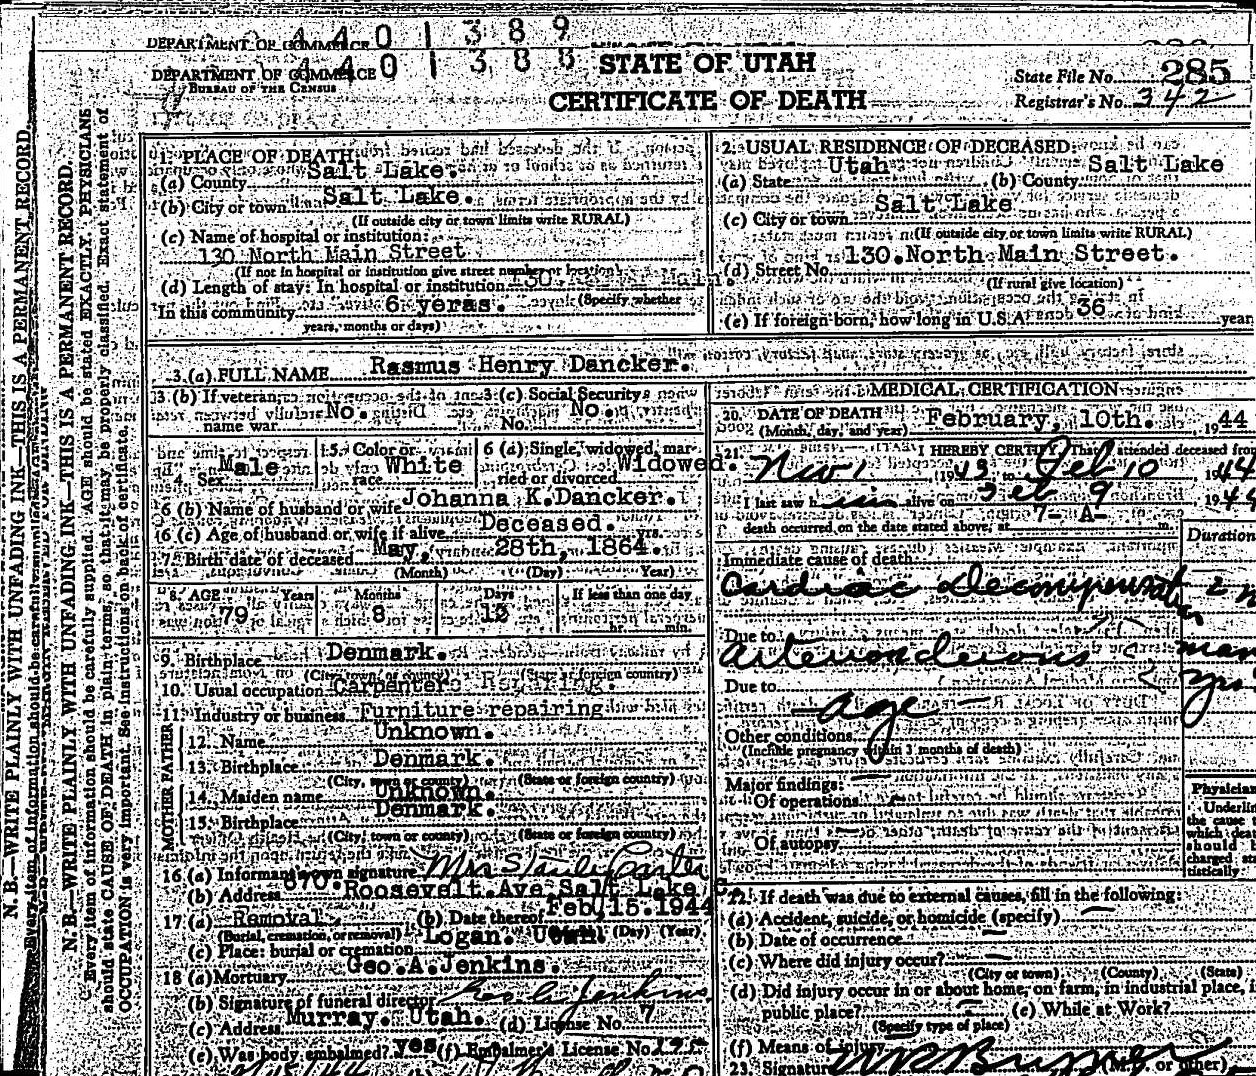 DEPARTMENT OF COMMERCE 440 | 389
DEPARTMENT OF COMMERCE 440 | 388
BUREAU OF THE CENSUS
STATE OF UTAH
CERTIFICATE OF DEATH
State File No. 285
Registrar's No. 342
N. B.—WRITE PLAINLY WITH UNFADING INK—THIS IS A PERMANENT RECORD
N. B.—WRITE PLAINLY WITH UNFADING INK—THIS IS A PERMANENT RECORD.
Every item of information should be carefully supplied. AGE should be stated EXACTLY. PHYSICIANS
should state CAUSE OF DEATH in plain terms, so that it may be properly classified. Exact statement of
OCCUPATION is very important. See instructions on back of certificate.
1. PLACE OF DEATH:
(a) County Salt Lake.
(b) City or town Salt Lake.
(If outside city or town limits write RURAL)
(c) Name of hospital or institution:
130 North Main Street
(If not in hospital or institution give street number or location)
(d) Length of stay: In hospital or institution
(Specify whether
In this community 6 yeras.
years, months or days)
2. USUAL RESIDENCE OF DECEASED:
(a) State Utah (b) County Salt Lake
(c) City or town Salt Lake
(If outside city or town limits write RURAL)
(d) Street No. 130.North Main Street.
(If rural give location)
(e) If foreign born, how long in U.S.A. 36 year
3. (a) FULL NAME Rasmus Henry Dancker.
3 (b) If veteran, name war No.
3 (c) Social Security No. No.
4. Sex Male
5. Color or race White
6 (a) Single, widowed, married or divorced Widowed.
6 (b) Name of husband or wife Johanna K.Dancker.
6 (c) Age of husband or wife if alive Deceased. yrs.
7. Birth date of deceased May, 28th, 1864.
(Month) (Day) Year)
8. AGE Years Months Days If less than one day
79 8 13 hr. min.
9. Birthplace Denmark.
(City, town or county) (State or foreign country)
10. Usual occupation Carpenter
11. Industry or business Furniture repairing
FATHER
12. Name Unknown.
13. Birthplace Denmark.
(City, town or county) (State or foreign country)
MOTHER
14. Maiden name Unknown.
15. Birthplace Denmark.
(City, town or county) (State or foreign country)
16 (a) Informant's own signature Mrs Stanley Carter
(b) Address 670. Roosevelt.Ave Salt Lake
17 (a) Removal (b) Date thereof Feb,15.1944
(Burial, cremation, or removal) (Day) (Year)
(c) Place: burial or cremation Logan. Utah.
18 (a) Mortuary Geo.A.Jenkins.
(b) Signature of funeral director Geo. A. Jenkins
(c) Address Murray. Utah. (d) License No. 7
(e) Was body embalmed? yes (f) Embalmer's License No.
MEDICAL CERTIFICATION
20. DATE OF DEATH February, 10th. 1944
(Month, day, and year)
21. I HEREBY CERTIFY, That I attended deceased from
Nov 1 1943 to Feb 10, 1944
I last saw him alive on Feb 9 1944
death occurred on the date stated above, at 7- A- m.
Duration
Immediate cause of death:
Cardiac Decompensation 2 m
Due to
Arteriosclerosis many
yrs
Due to
Age
Other conditions
(Include pregnancy within 3 months of death)
Major findings:
Of operations
Of autopsy
Physician
Underlin
the cause
which dea
should b
charged sta
tistically
22. If death was due to external causes, fill in the following:
(a) Accident, suicide, or homicide (specify)
(b) Date of occurrence
(c) Where did injury occur?
(City or town) (County) (State)
(d) Did injury occur in or about home, on farm, in industrial place, i
public place? (e) While at Work?
(Specify type of place)
(f) Means of injury
23. Signature (M.D. or other)